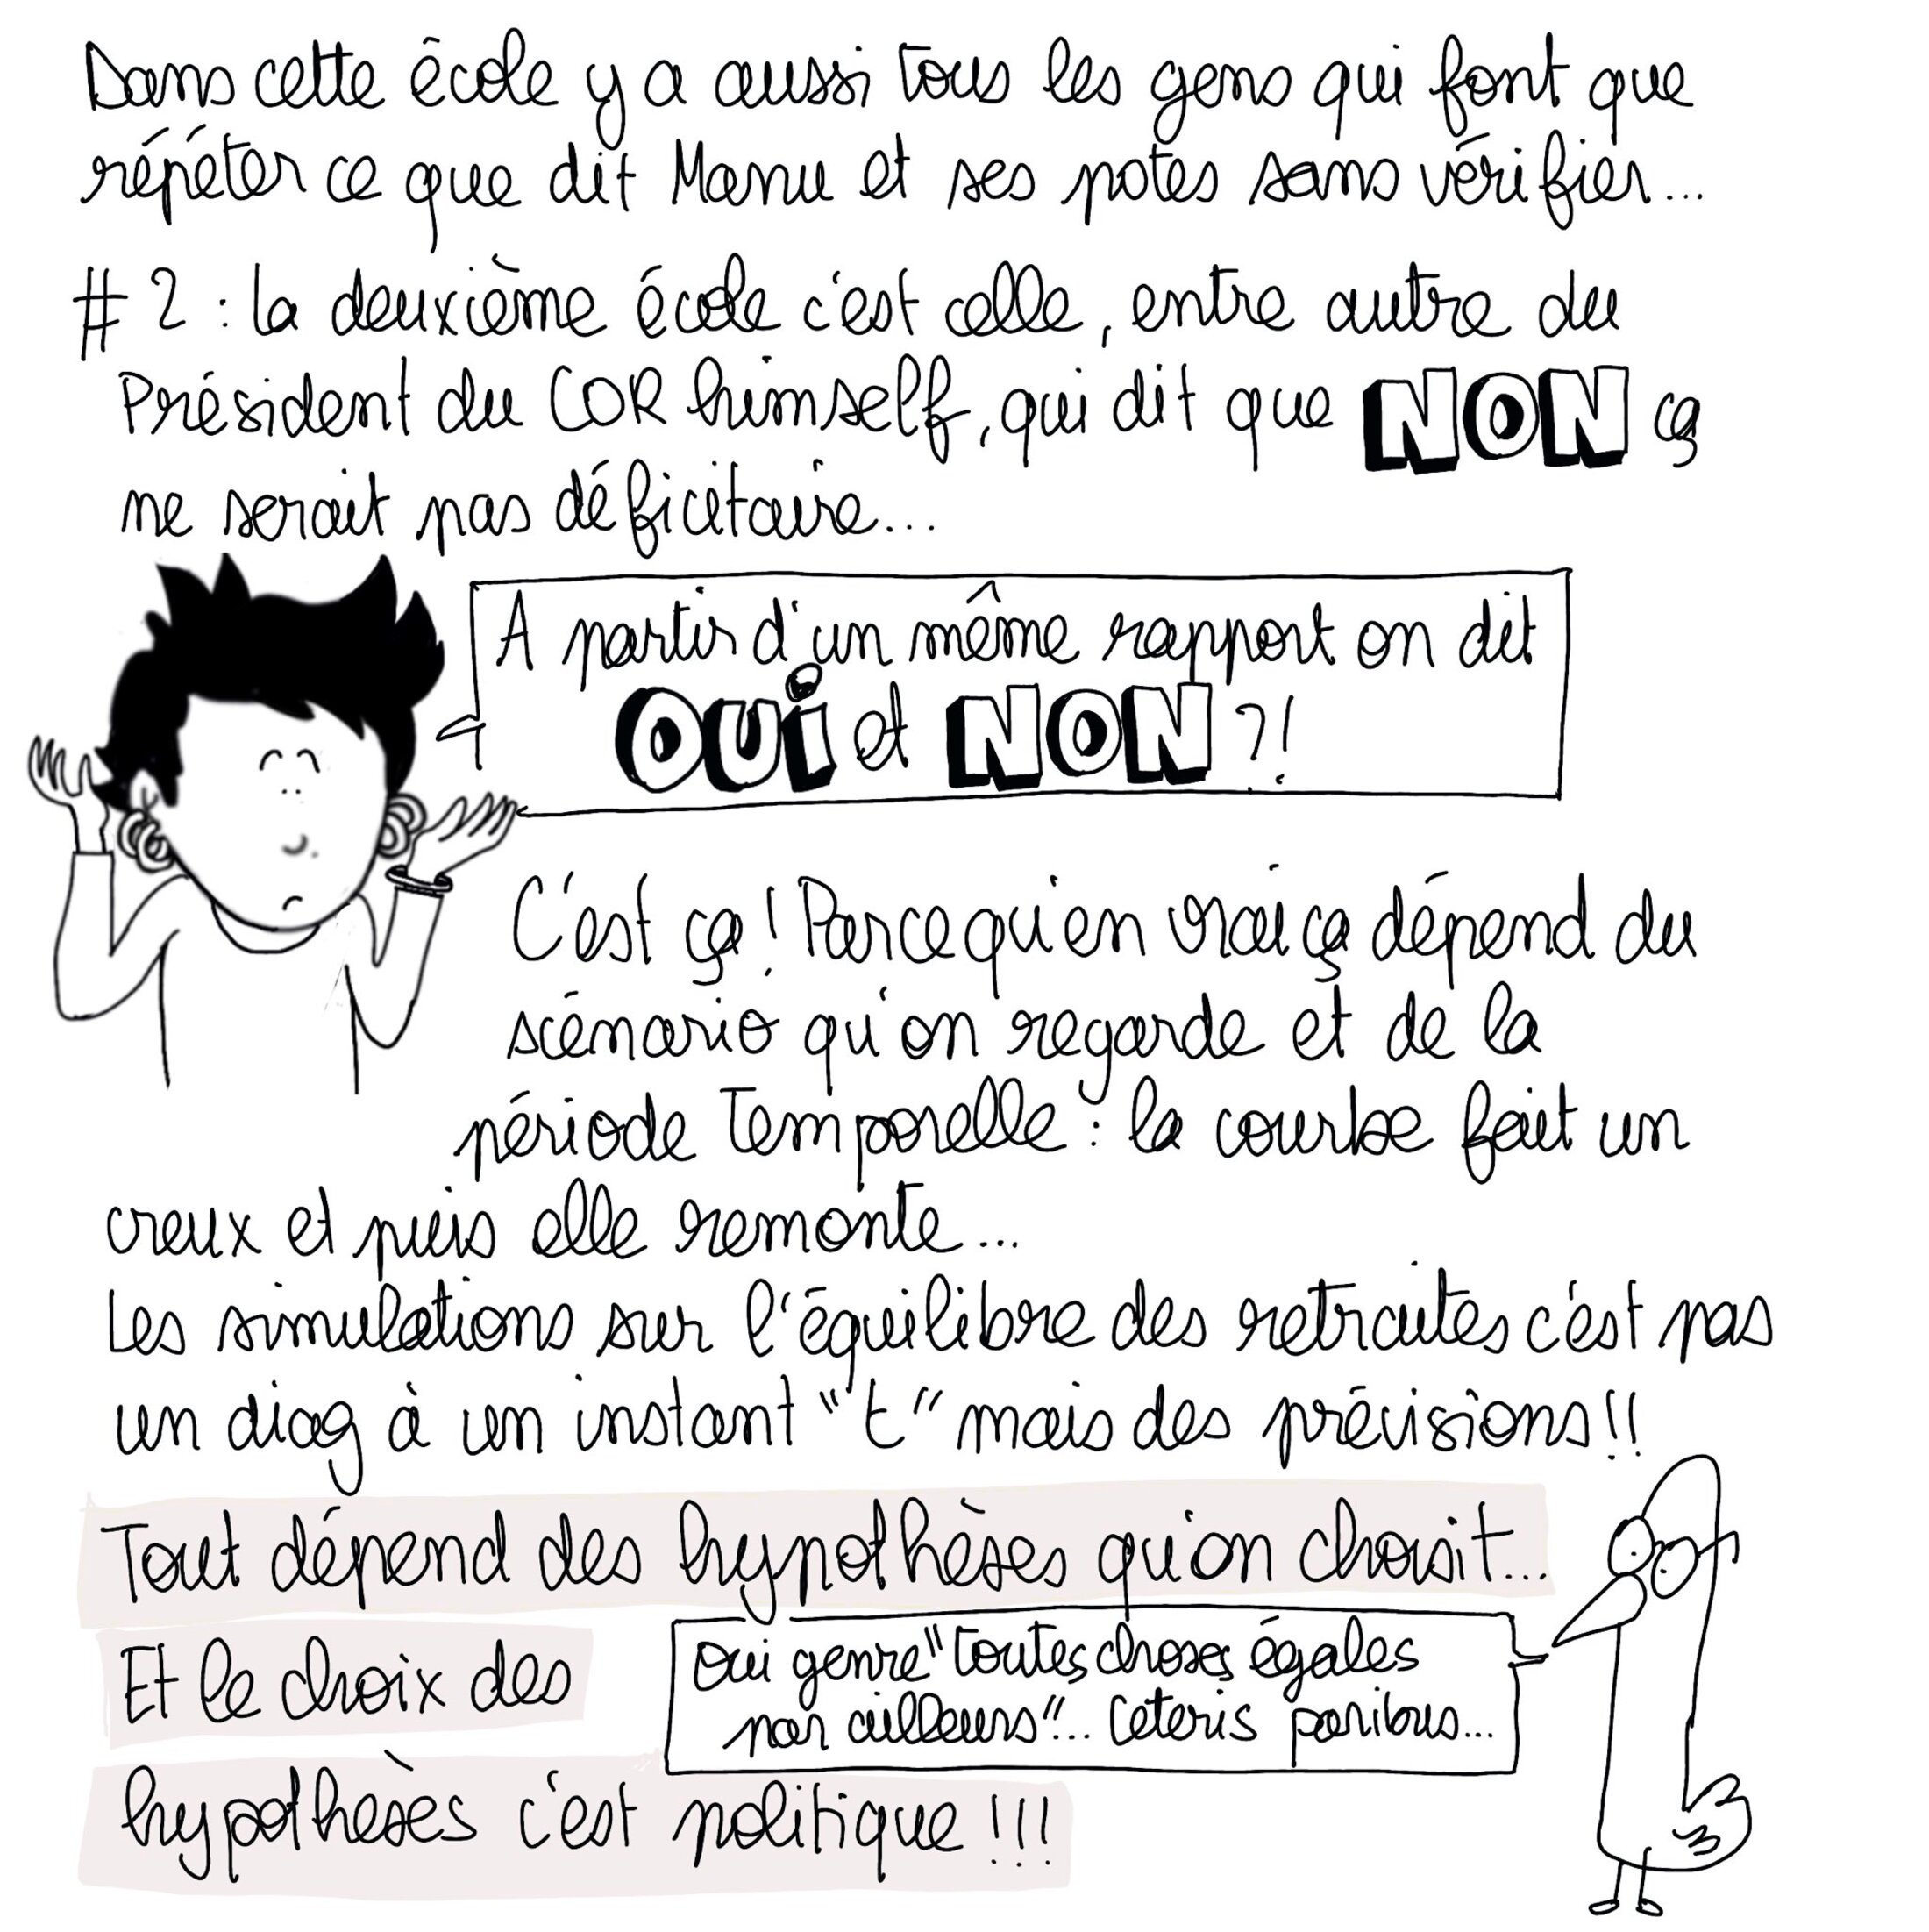 Dans cette école y a aussi tous les gens qui font que
répéter ce que dit Manu et ses potes sans vérifier...
# 2 : la deuxième école c'est celle, entre autre du
Président du COR himself, qui dit que NON ça
ne serait pas déficitaire...
A partir d'un même rapport on dit
OUi et NON ?!
C'est ça ! Parce qu'en vrai ça dépend du
scénario qu'on regarde et de la
période temporelle : la courbe fait un
creux et puis elle remonte...
Les simulations sur l'équilibre des retraites c'est pas
un diag à un instant "t" mais des prévisions !!
Tout dépend des hypothèses qu'on choisit...
Et le choix des
hypothèses c'est politique !!!
Oui genre "toutes choses égales
par ailleurs"... Ceteris paribus...